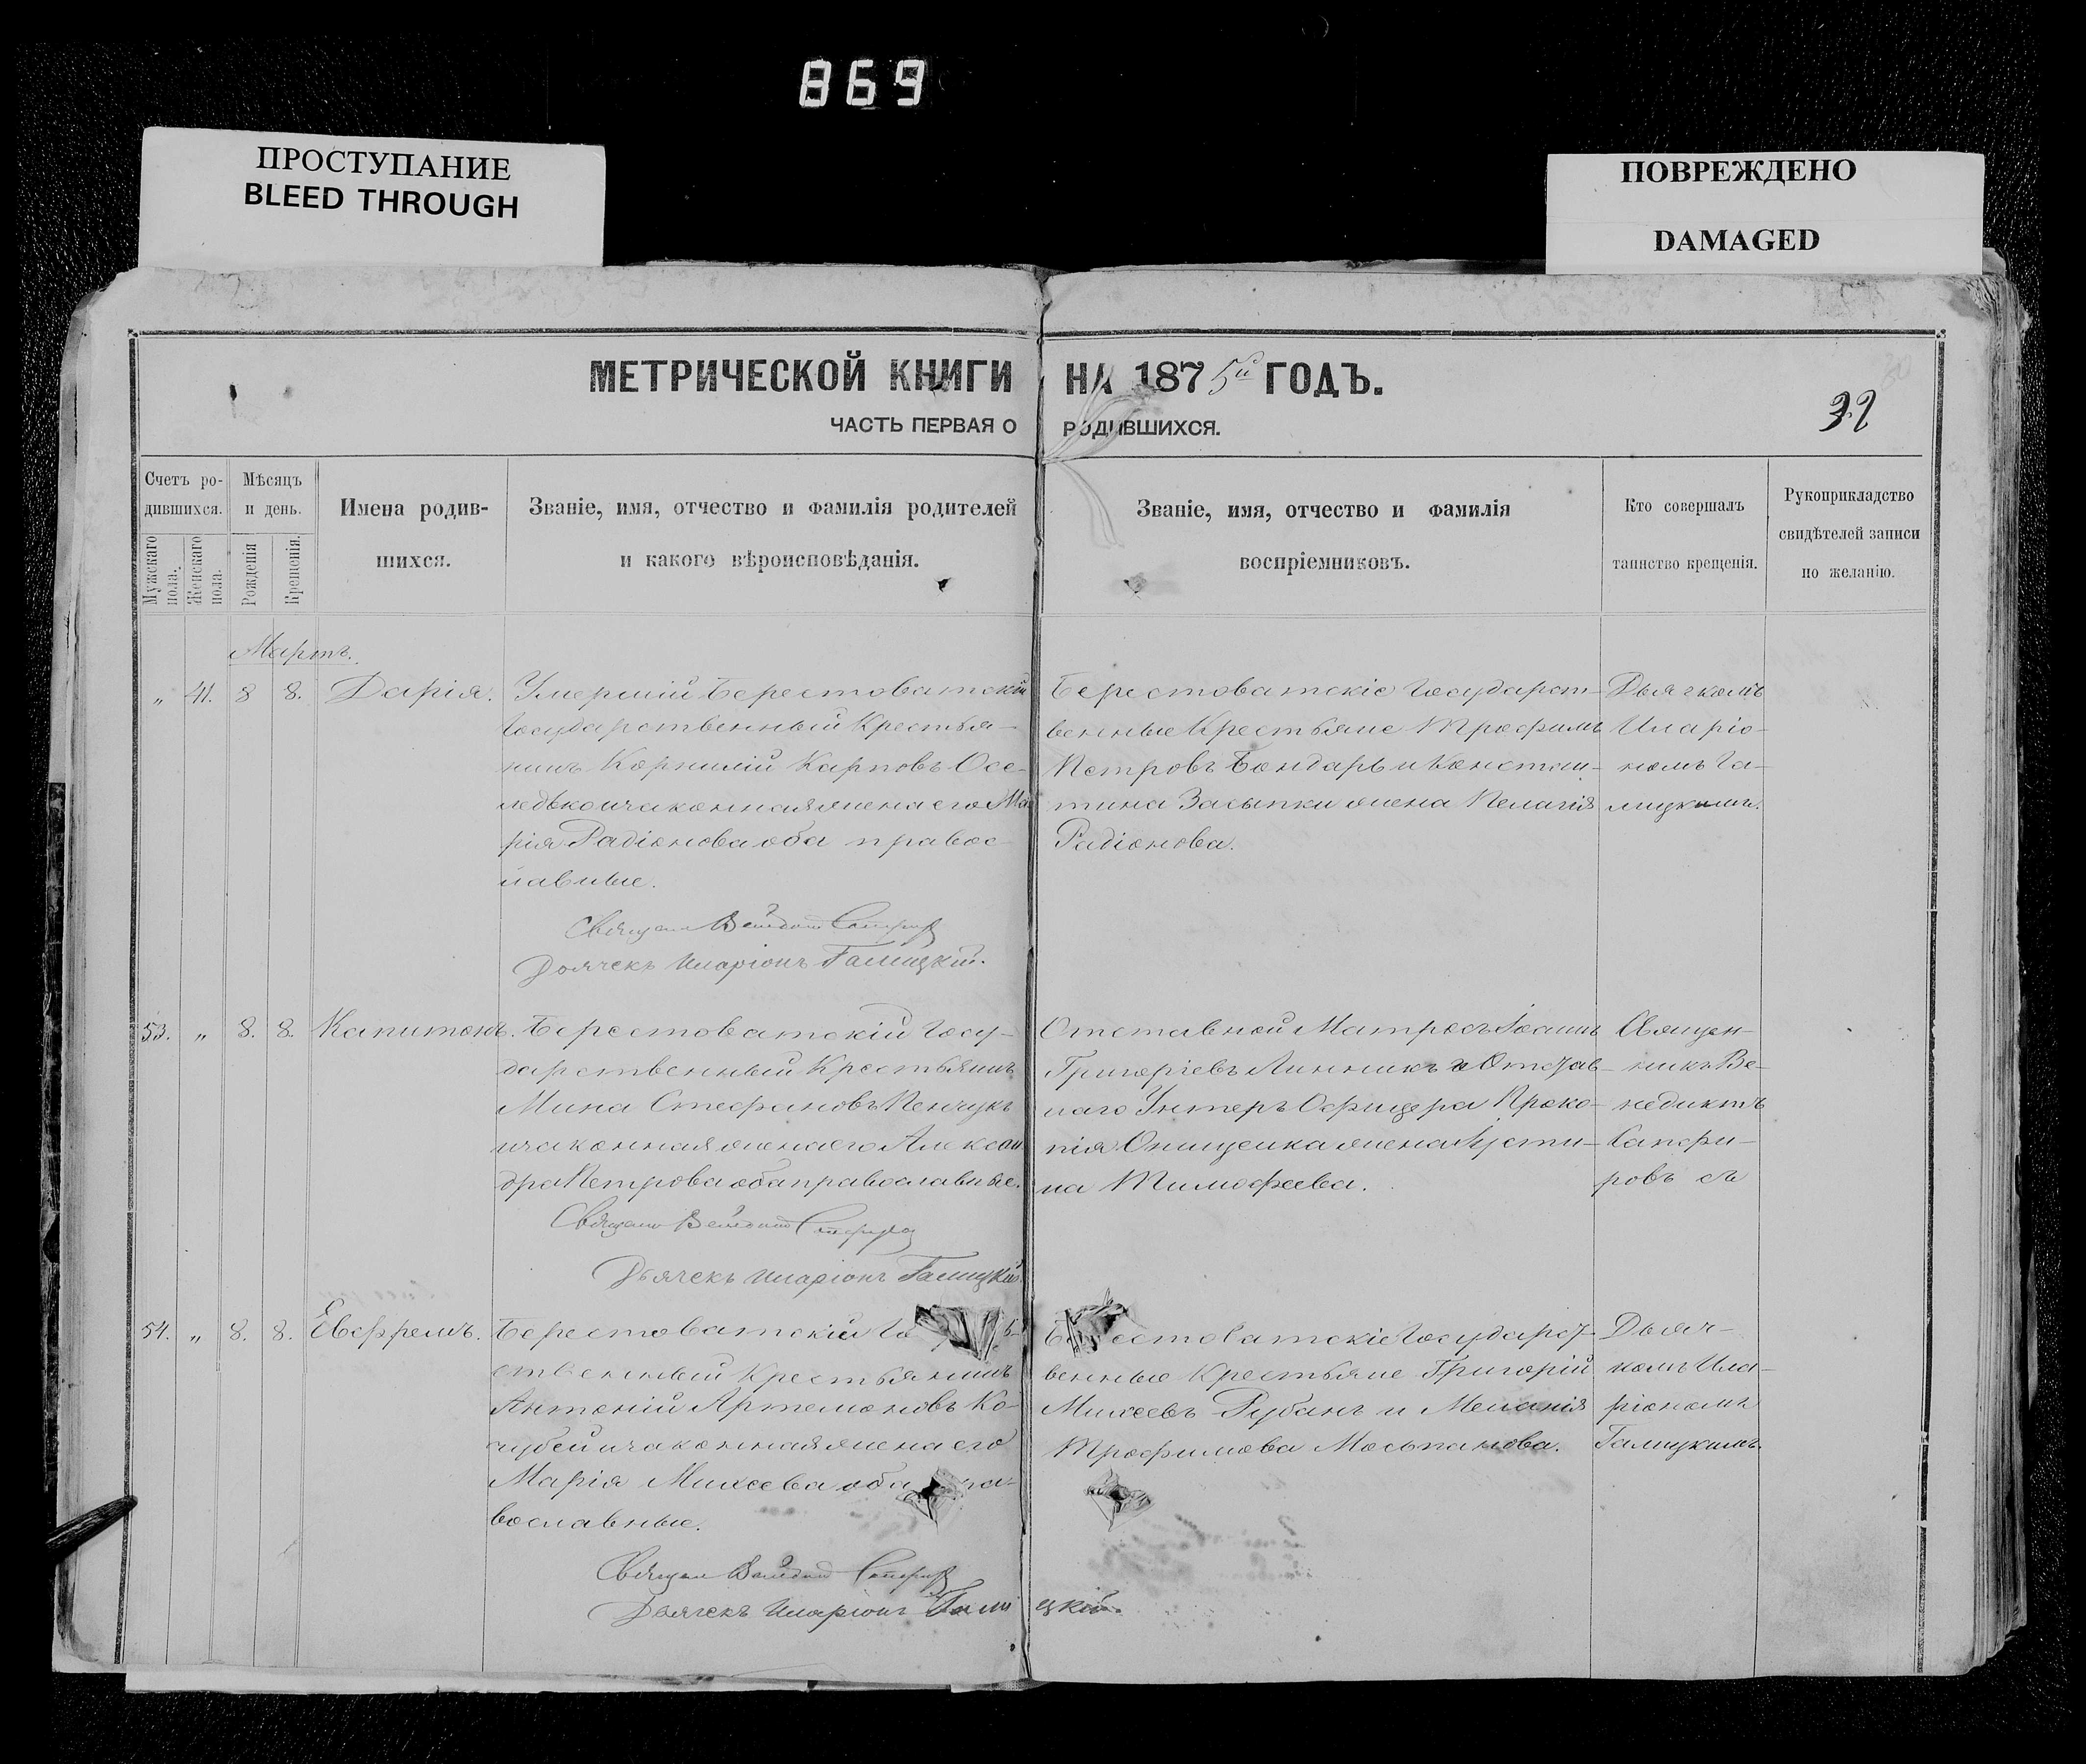 869
ПРОСТУПАНИЕ
BLEED THROUGH
ПОВРЕЖДЕНО
DAMAGED
МЕТРИЧЕСКОЙ КНИГИ НА 1875й ГОДЪ.
ЧАСТЬ ПЕРВАЯ О РОДИВШИХСЯ.
32
Счетъ ро-
дившихся.
Мужскаго пола.
Женскаго пола.
Мѣсяцъ
и день.
Рожденія
Крещенія.
Имена родив-
шихся.
Званіе, имя, отчество и фамилія родителей
и какого вѣроисповѣданія.
Званіе, имя, отчество и фамилія
воспріемниковъ.
Кто совершалъ
таинство крещенія.
Рукоприкладство
свидѣтелей записи
по желанію.
Мартъ.
„ 41. 8 8. Дарія.
Умершій Берестоватскій
Государственный Крестья-
нинъ Корнилій Карповъ Осе-
ледько и законная жена его Ма
рія Радіонова оба правос
лавные.
Дьячекъ Иларіонъ Галицкій.
Берестоватскіе Государст-
венные Крестьяне Трофимъ
Петровъ Бондарь и Констан-
тина Засыпки жена Пелагія
Радіонова.
Дьячкомъ
Иларіо-
номъ Га-
лицкимъ.
53. „ 8. 8. Капитонъ.
Берестоватскій Госу-
дарственный Крестьянинъ
Мина Стефановъ Пенчукъ
и законная жена его Алексан
дра Петрова оба православные.
Дьячекъ Иларіонъ Галицкій.
Отставной Матросъ Іоаннъ
Григоріевъ Линникъ и Отстав-
наго Унтеръ Офицера Проко-
пія Онищенка жена Іусти-
на Тимофеева.
Священ-
никъ Ве-
недиктъ
Сапфи-
ровъ съ
54. „ 8. 8. Евфремъ.
Берестоватскій Го
ственный Крестьянинъ
Антоній Артемоновъ Ко-
чубей и законная жена его
Марія Михеева оба пра-
вославные.
Дьячекъ Иларіонъ Галицкій.
Берестоватскіе Государст-
венные Крестьяне Григорій
Михеевъ Рубанъ и Меланія
Трофимова Мосьпанова.
Дьяч-
комъ Ила-
ріономъ
Галицкимъ.